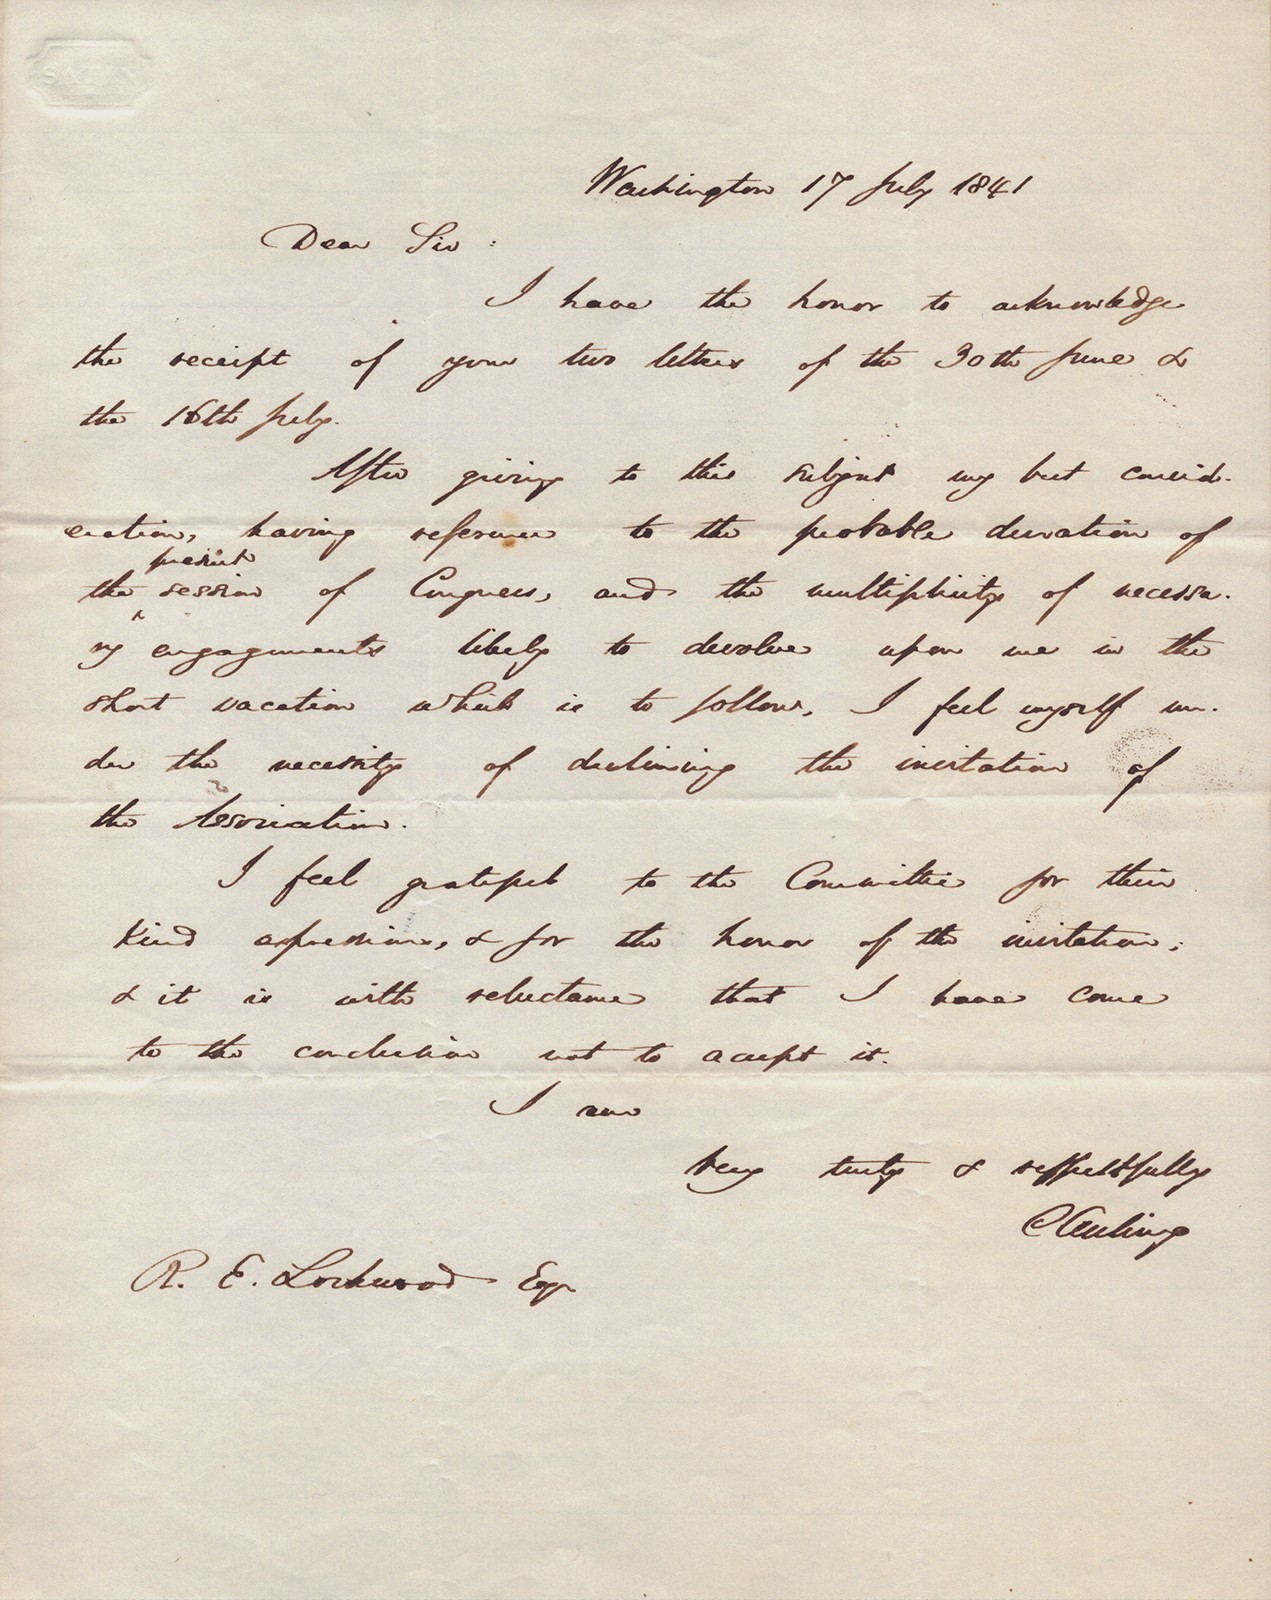 SATIN
Washington 17 July 1841
Dear Sir :
I have the honor to acknowledge
the receipt of your two letters of the 30th June &
the 16th July.
After giving to this subject my best consid-
eration, having reference to the probable duration of
present
the ^ session of Congress, and the multiplicity of necessa-
ry engagements likely to devolve upon me in the
short vacation which is to follow, I feel myself un-
der the necessity of declining the invitation of
the Association.
I feel grateful to the Committee for their
kind expressions, & for the honor of the invitation;
& it is with reluctance that I have come
to the conclusion not to accept it.
I am
very truly & respectfully
C Cushing
R. E. Lockwood Esqr